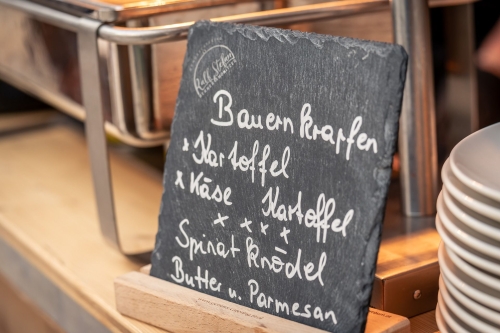 Bauernkrapfen
x Kartoffel
x Käse Kartoffel
x x x x
Spinat Knödel
Butter u. Parmesan